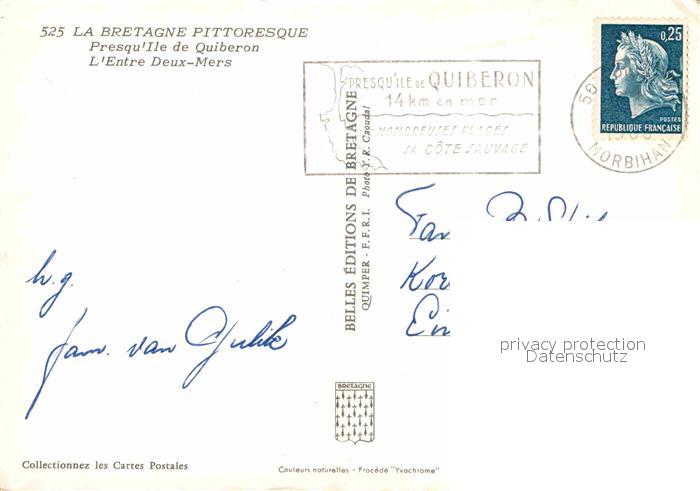 525 LA BRETAGNE PITTORESQUE
Presqu'Ile de Quiberon
L'Entre Deux-Mers
PRESQU'ILE DE QUIBERON
14 km en mer
NOMBREUSES PLAGES
SA CÔTE SAUVAGE
0,25
POSTES
RÉPUBLIQUE FRANÇAISE
56
MORBIHAN
BELLES ÉDITIONS DE BRETAGNE
QUIMPER - F.F.R.I. Photo Y. R. Caoudal
Fam.
h.g.
Fam. van Gulik
privacy protection
Datenschutz
BRETAGNE
Collectionnez les Cartes Postales
Couleurs naturelles - Procédé "Yvachrome"